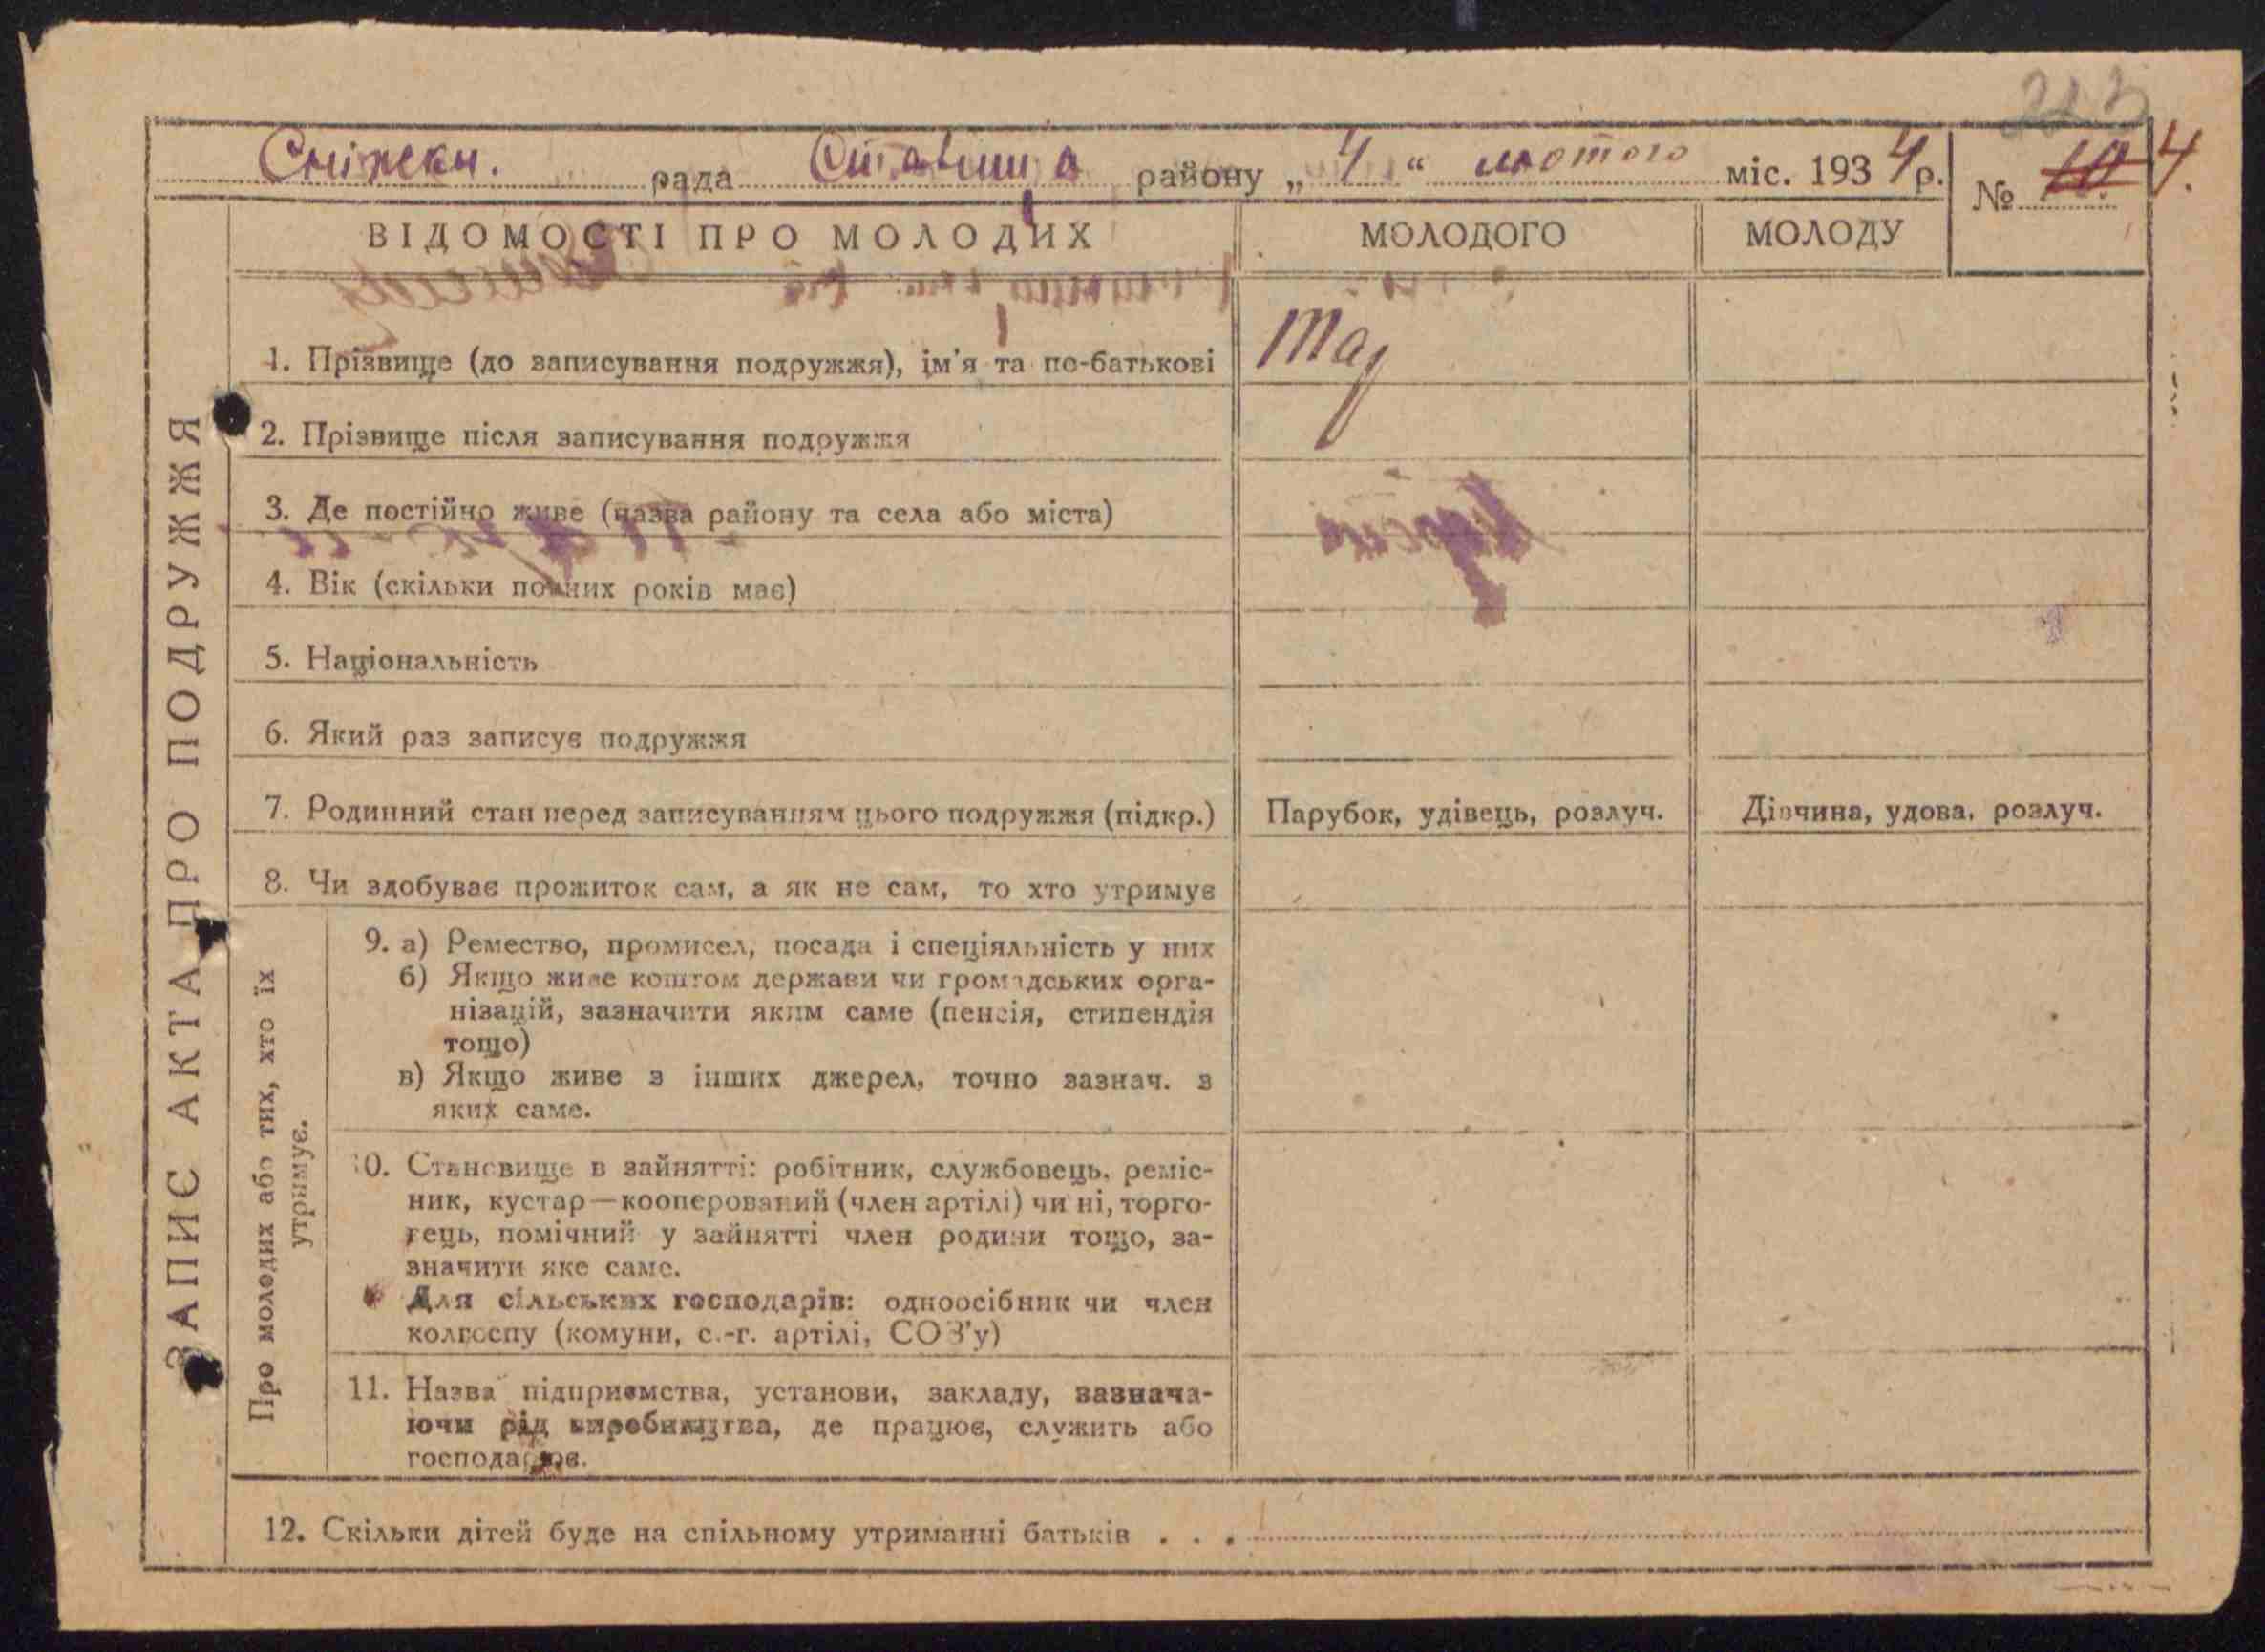 213
Сніжекн. рада Ставища району „ 4 “ лютого міс. 1934 р. № 10. 4.
ВІДОМОСТІ ПРО МОЛОДИХ МОЛОДОГО МОЛОДУ
1. Прізвище (до записування подружжя), ім'я та по-батькові
2. Прізвище після записування подружжя
3. Де постійно живе (назва району та села або міста)
4. Вік (скільки повних років має)
5. Національність
6. Який раз записує подружжя
7. Родинний стан перед записуванням цього подружжя (підкр.) Парубок, удівець, розлуч. Дівчина, удова, розлуч.
8. Чи здобуває прожиток сам, а як не сам, то хто утримує
ЗАПИС АКТА ПРО ПОДРУЖЖЯ
Про молодих або тих, хто їх
утримує.
9. а) Ремество, промисел, посада і спеціяльність у них
б) Якщо живе коштом держави чи громадських орга-
нізацій, зазначити яким саме (пенсія, стипендія
тощо)
в) Якщо живе з інших джерел, точно зазнач. з
яких саме.
10. Становище в зайнятті: робітник, службовець, реміс-
ник, кустар—кооперований (член артілі) чи ні, торго-
вець, помічний у зайнятті член родини тощо, за-
значити яке саме.
Для сільських господарів: одноосібник чи член
колгоспу (комуни, с.-г. артілі, СОЗ'у)
11. Назва підприємства, установи, закладу, зазнача-
ючи рід виробництва, де працює, служить або
господарює.
12. Скільки дітей буде на спільному утриманні батьків . . .